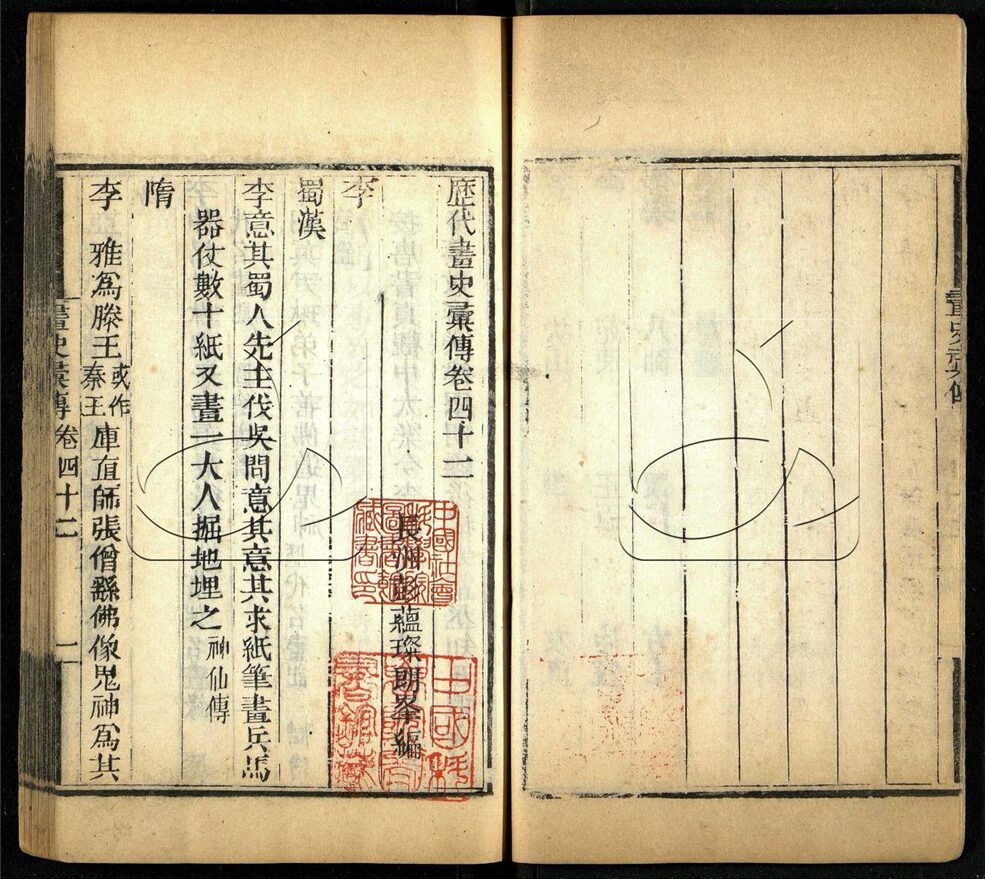 歷代畫史彙傳卷四十二
長洲彭蘊璨朗峯編
李
蜀漢
李意其蜀人先主伐吳問意其意其求紙筆畫兵馬
器仗數十紙又畫一大人掘地埋之神仙傳
隋
李雅爲滕王或作秦王庫直師張僧繇佛像鬼神爲其
畫史彙傳卷四十二 一